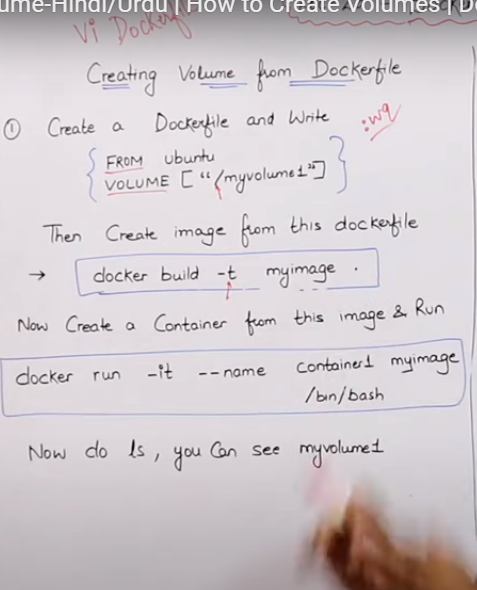 ume-Hindi/Urdu | How to Create Volumes | D
Vi Dockerfile
Creating Volume from Dockerfile
① Create a Dockerfile and Write :wq
FROM Ubuntu
VOLUME ["/myvolume1"]
Then Create image from this dockerfile
→ docker build -t myimage .
Now Create a Container from this image & Run
docker run -it --name container1 myimage
/bin/bash
Now do ls, you Can see myvolume1